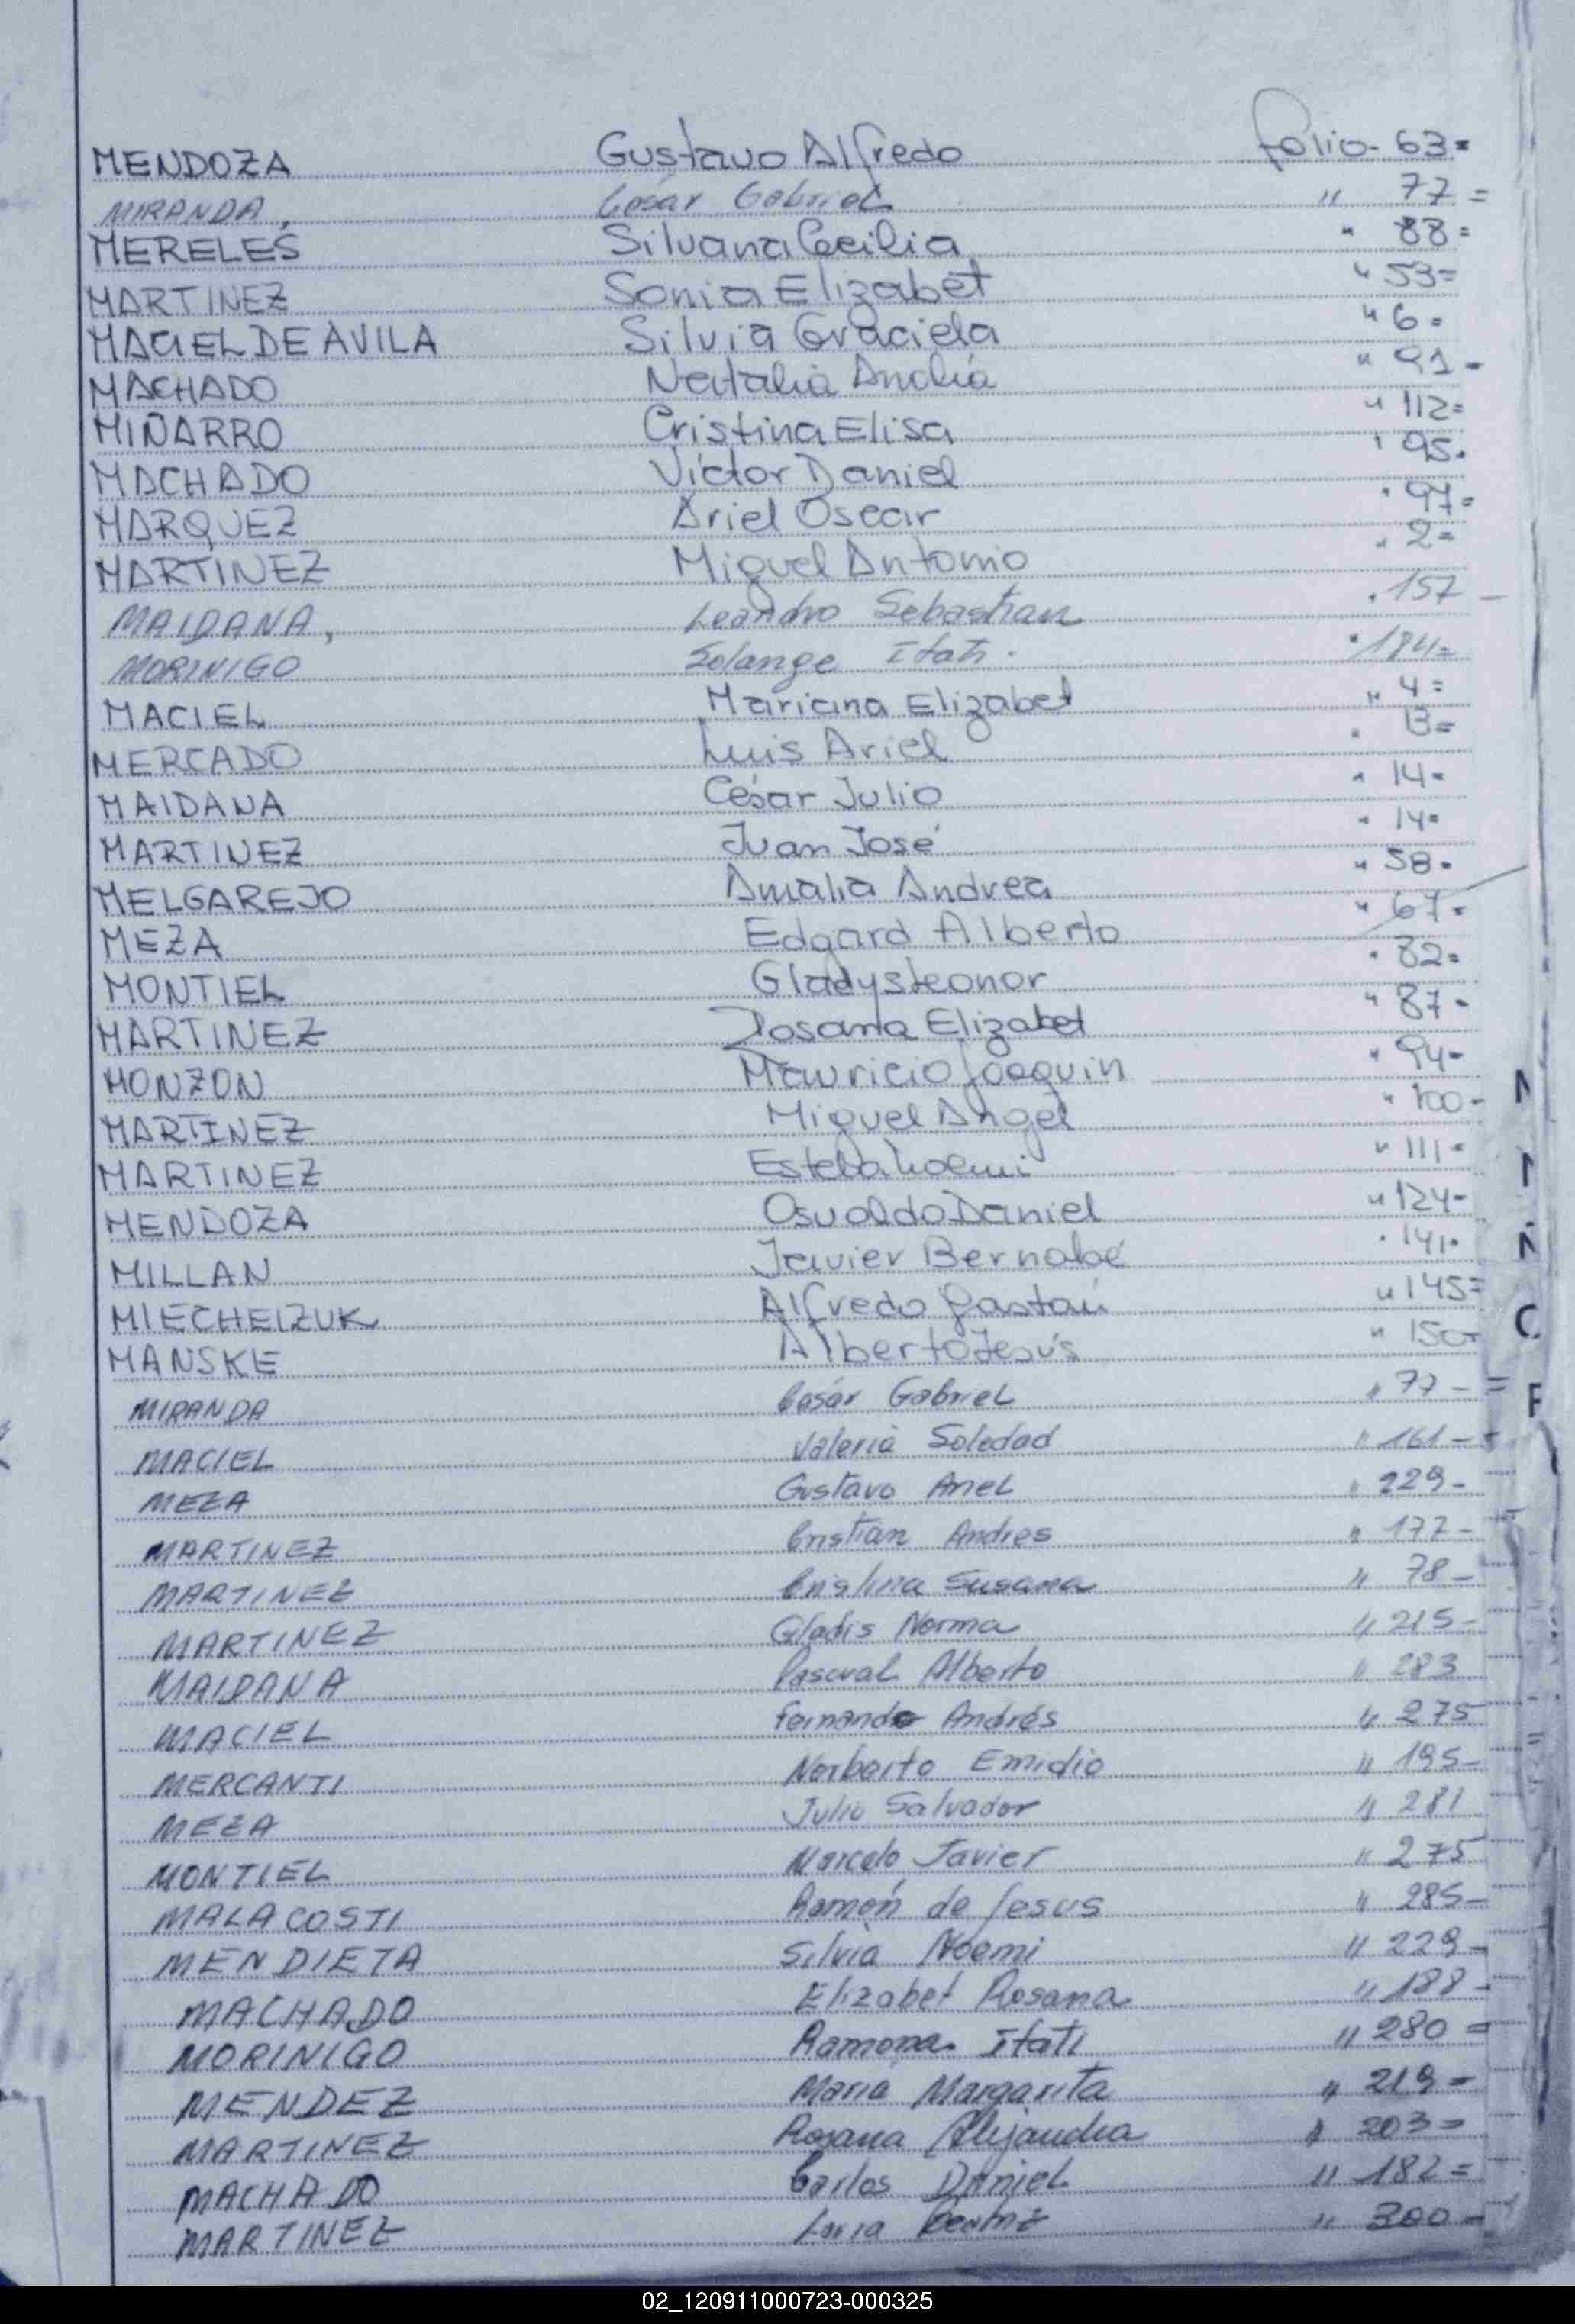 MENDOZA Gustavo Alfredo folio- 63=
MIRANDA, César Gabriel " 77 =
MERELES Silvana Cecilia " 88=
MARTINEZ Sonia Elizabet " 53=
MACIEL DE AVILA Silvia Graciela " 6=
MACHADO Natalia Analia " 91-
MIÑARRO Cristina Elisa " 112=
MACHADO Victor Daniel " 95.
MARQUEZ Ariel Oscar " 97=
MARTINEZ Miguel Antonio " 2=
MAIDANA, Leandro Sebastian " 157 -
MORINIGO Solange Itati. " 184=
MACIEL Mariana Elizabet " 4=
MERCADO Luis Ariel " 13=
MAIDANA César Julio " 14=
MARTINEZ Juan José " 14=
MELGAREJO Amalia Andrea " 58=
MEZA Edgard Alberto " 67=
MONTIEL Gladys Leonor " 82=
MARTINEZ Rosana Elizabet " 87-
MONZON Mauricio Joaquin " 94-
MARTINEZ Miguel Angel " 100-
MARTINEZ Estela Noemi " 111=
MENDOZA Osvaldo Daniel " 124-
MILLAN Javier Bernabé " 141=
MIECHEIZUK Alfredo Gastón " 145=
MANSKE Alberto Jesús " 150=
MIRANDA César Gabriel " 77 -
MACIEL Valeria Soledad " 161-
MEZA Gustavo Ariel " 229-
MARTINEZ Cristian Andres " 177-
MARTINEZ Cristina Susana " 78-
MARTINEZ Gladis Norma " 215-
MAIDANA Pascual Alberto " 283
MACIEL Fernando Andrés " 275
MERCANTI Norberto Emidio " 195-
MEZA Julio Salvador " 281
MONTIEL Marcelo Javier " 275
MALACOSTI Ramón de Jesus " 285-
MENDIETA Silvia Noemi " 229-
MACHADO Elizabet Rosana " 188-
MORINIGO Ramona Itati " 280=
MENDEZ Maria Margarita " 219=
MARTINEZ Rosana Alejandra " 203=
MACHADO Carlos Daniel " 182=
MARTINEZ Beatriz " 300=
02_120911000723-000325